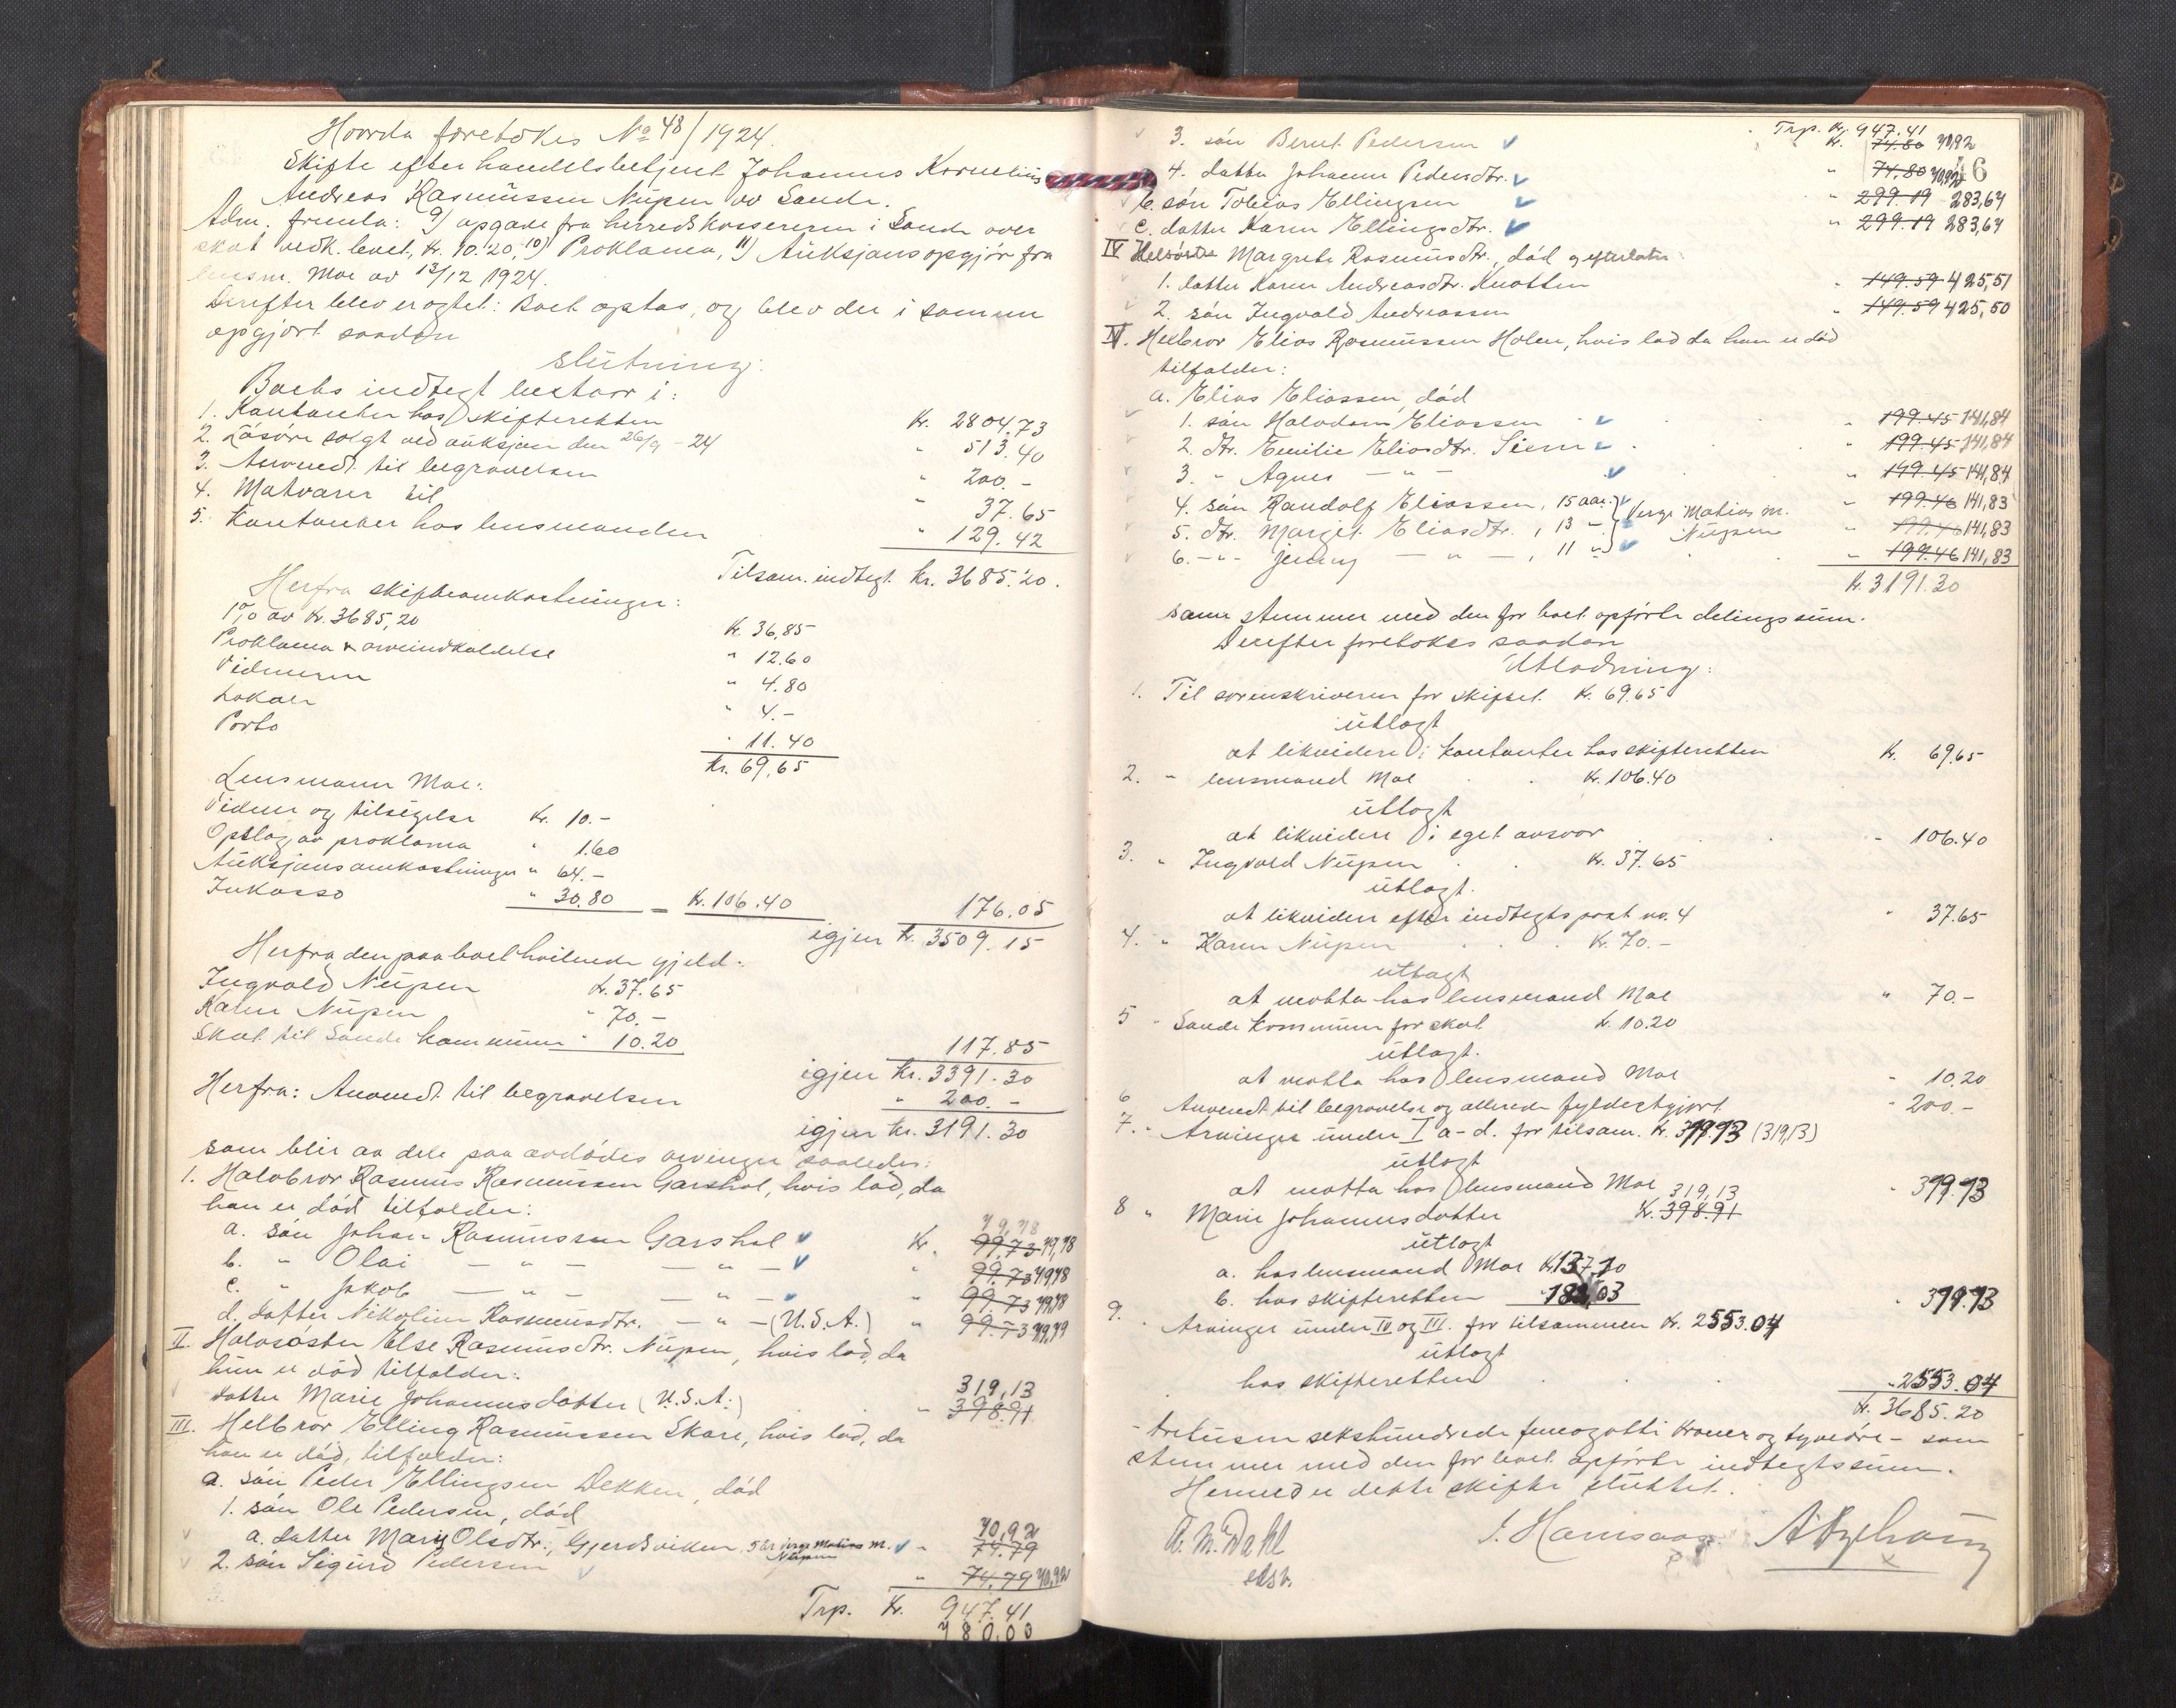 Hvorda foretokes No 48/1924.
Skifte efter handelsbetjent Johannes Kornelius
Andreas Rasmussen Nupen av Sande.
Adm. fremla: 9) opgave fra herredskassereren i Sande over
skat vedk. boet, kr. 10.20, 10) Proklama, 11) Auksjonsopgjør fra
lensm. Moe av 13/12 1924.
Derefter blev eragtet: Boet optas, og blev der i samme
opgjort saadan
slutning:
Boets indtegt bestaar i:
1. Kontanter hos skifteretten Kr. 2804.73
2. Løsøre solgt ved auksjon den 26/9 - 24 " 513.40
3. Anvendt til begravelsen " 200.-
4. Matvarer til " 37.65
5. Kontanter hos lensmanden " 129.42
Tilsam. indtegt kr. 3685.20.
Herfra skifteomkostninger:
1% av kr. 3685,20 Kr. 36,85
Proklama & arveindkaldelse " 12.60
Vidneren " 4.80
Lokale " 4.-
Porto " 11.40
Kr. 69,65
Lensmann Moe:
Vidner og tilsigelse Kr. 10.-
Opslag av proklama " 1.60
Auksjonsomkostninger " 64.-
Inkasso " 30.80 = Kr. 106.40 176.05
igjen kr. 3509.15
Herfra den paa boet hvilende gjeld.
Ingvald Nupen Kr. 37.65
Karen Nupen " 70.-
Skat til Sande kommune " 10.20 117.85
igjen Kr. 3391.30
Herfra: Anvendt til begravelsen " 200.-
igjen kr. 3191.30
som blir aa dele paa avdødes arvinger saaledes:
1. Halvbror Rasmus Rasmussen Garshol, hvis lod, da
han er død tilfalder:
79,78
a. søn Johan Rasmussen Garshol Kr. 99.73 79,78
b. " Olai — " — — " — " 99.73 79,78
c. " Jakob — " — — " — " 99.73 79,78
d. datter Nikoline Rasmusdtr. — " — (U.S.A.) " 99.73 79,79
II. Halvsøster Else Rasmusdtr. Nupen, hvis lod, da
hun er død tilfalder:
319,13
datter Marie Johannesdatter (U.S.A.) " 398.91
III. Helbror Elling Rasmussen Skare, hvis lod, da
han er død, tilfalder:
a. søn Peder Ellingsen Dekken, død
1. søn Ole Pedersen, død
70,92
a. datter Mary Olsdtr., Gjerdsviken 5 år verge Matias M. Nupen " 74.79
2. søn Sigurd Pedersen " 74.79 70,92
Trp. Kr. 947.41
780,00
Trp. Kr. 947.41
3. søn Bernt Pedersen Kr. 74.80 70,92
4. datter Johanne Pedersdtr. " 74.80 70,92
b. søn Tobias Ellingsen " 299.19 283,64
c. datter Karen Ellingsdtr. " 299.19 283,64
IV Helsøster Margrete Rasmusdtr., død og efterlater:
1. datter Karen Andreasdtr. Knotten " 149.59 425,51
2. søn Ingvald Andreassen " 149.59 425,50
V. Helbror Elias Rasmussen Holen, hvis lod da han er død
tilfalder:
a. Elias Eliassen, død
1. søn Halvdan Eliassen " 199.45 141,84
2. dtr. Emilie Eliasdtr. Siem " 199.45 141,84
3. " Agnes — " — " 199.45 141,84
4. søn Randolf Eliassen, 15 aar } Verge Matias M. " 199.46 141,83
5. dtr. Margit Eliasdtr., 13 " } Nupen " 199.46 141,83
6. — " — Jenny — " —, 11 " } " 199.46 141,83
Kr. 3191.30
samme stemmer med den for boet opførte delingssum.
Derefter foretokes saadan
Utlodning:
1. Til sorenskriveren for skiftet Kr. 69.65
utlagt
at likvidere i kontanter hos skifteretten Kr. 69.65
2. " lensmand Moe Kr. 106.40
utlagt
at likvidere i eget ansvar " 106.40
3. " Ingvald Nupen Kr. 37.65
utlagt.
at likvidere efter indtegtspost no. 4 " 37.65
4. " Karen Nupen Kr. 70.-
utlagt
at motta hos lensmand Moe " 70.-
5 " Sande kommune for skat Kr. 10.20
utlagt.
at motta hos lensmand Moe " 10.20
6 Anvendt til begravelse og allerede fyldestgjort " 200.-
7. " Arvinger under I a-d. for tilsam. Kr. 319.13 (319,13)
utlagt
at motta hos lensmand Moe " 319.13
319,13
8 " Marie Johannesdatter Kr. 398.91
utlagt
a. hos lensmand Moe
b. hos skifteretten " 319.13
9. " Arvinger under IV og III. for tilsammen Kr. 2553.04
utlagt
hos skifteretten " 2553.04
Kr. 3685.20
- tretusen sekshundrede femogotti kroner og tyve øre - som
stemmer med den for boet opførte indtegtssum.
Hermed er dette skifte sluttet.